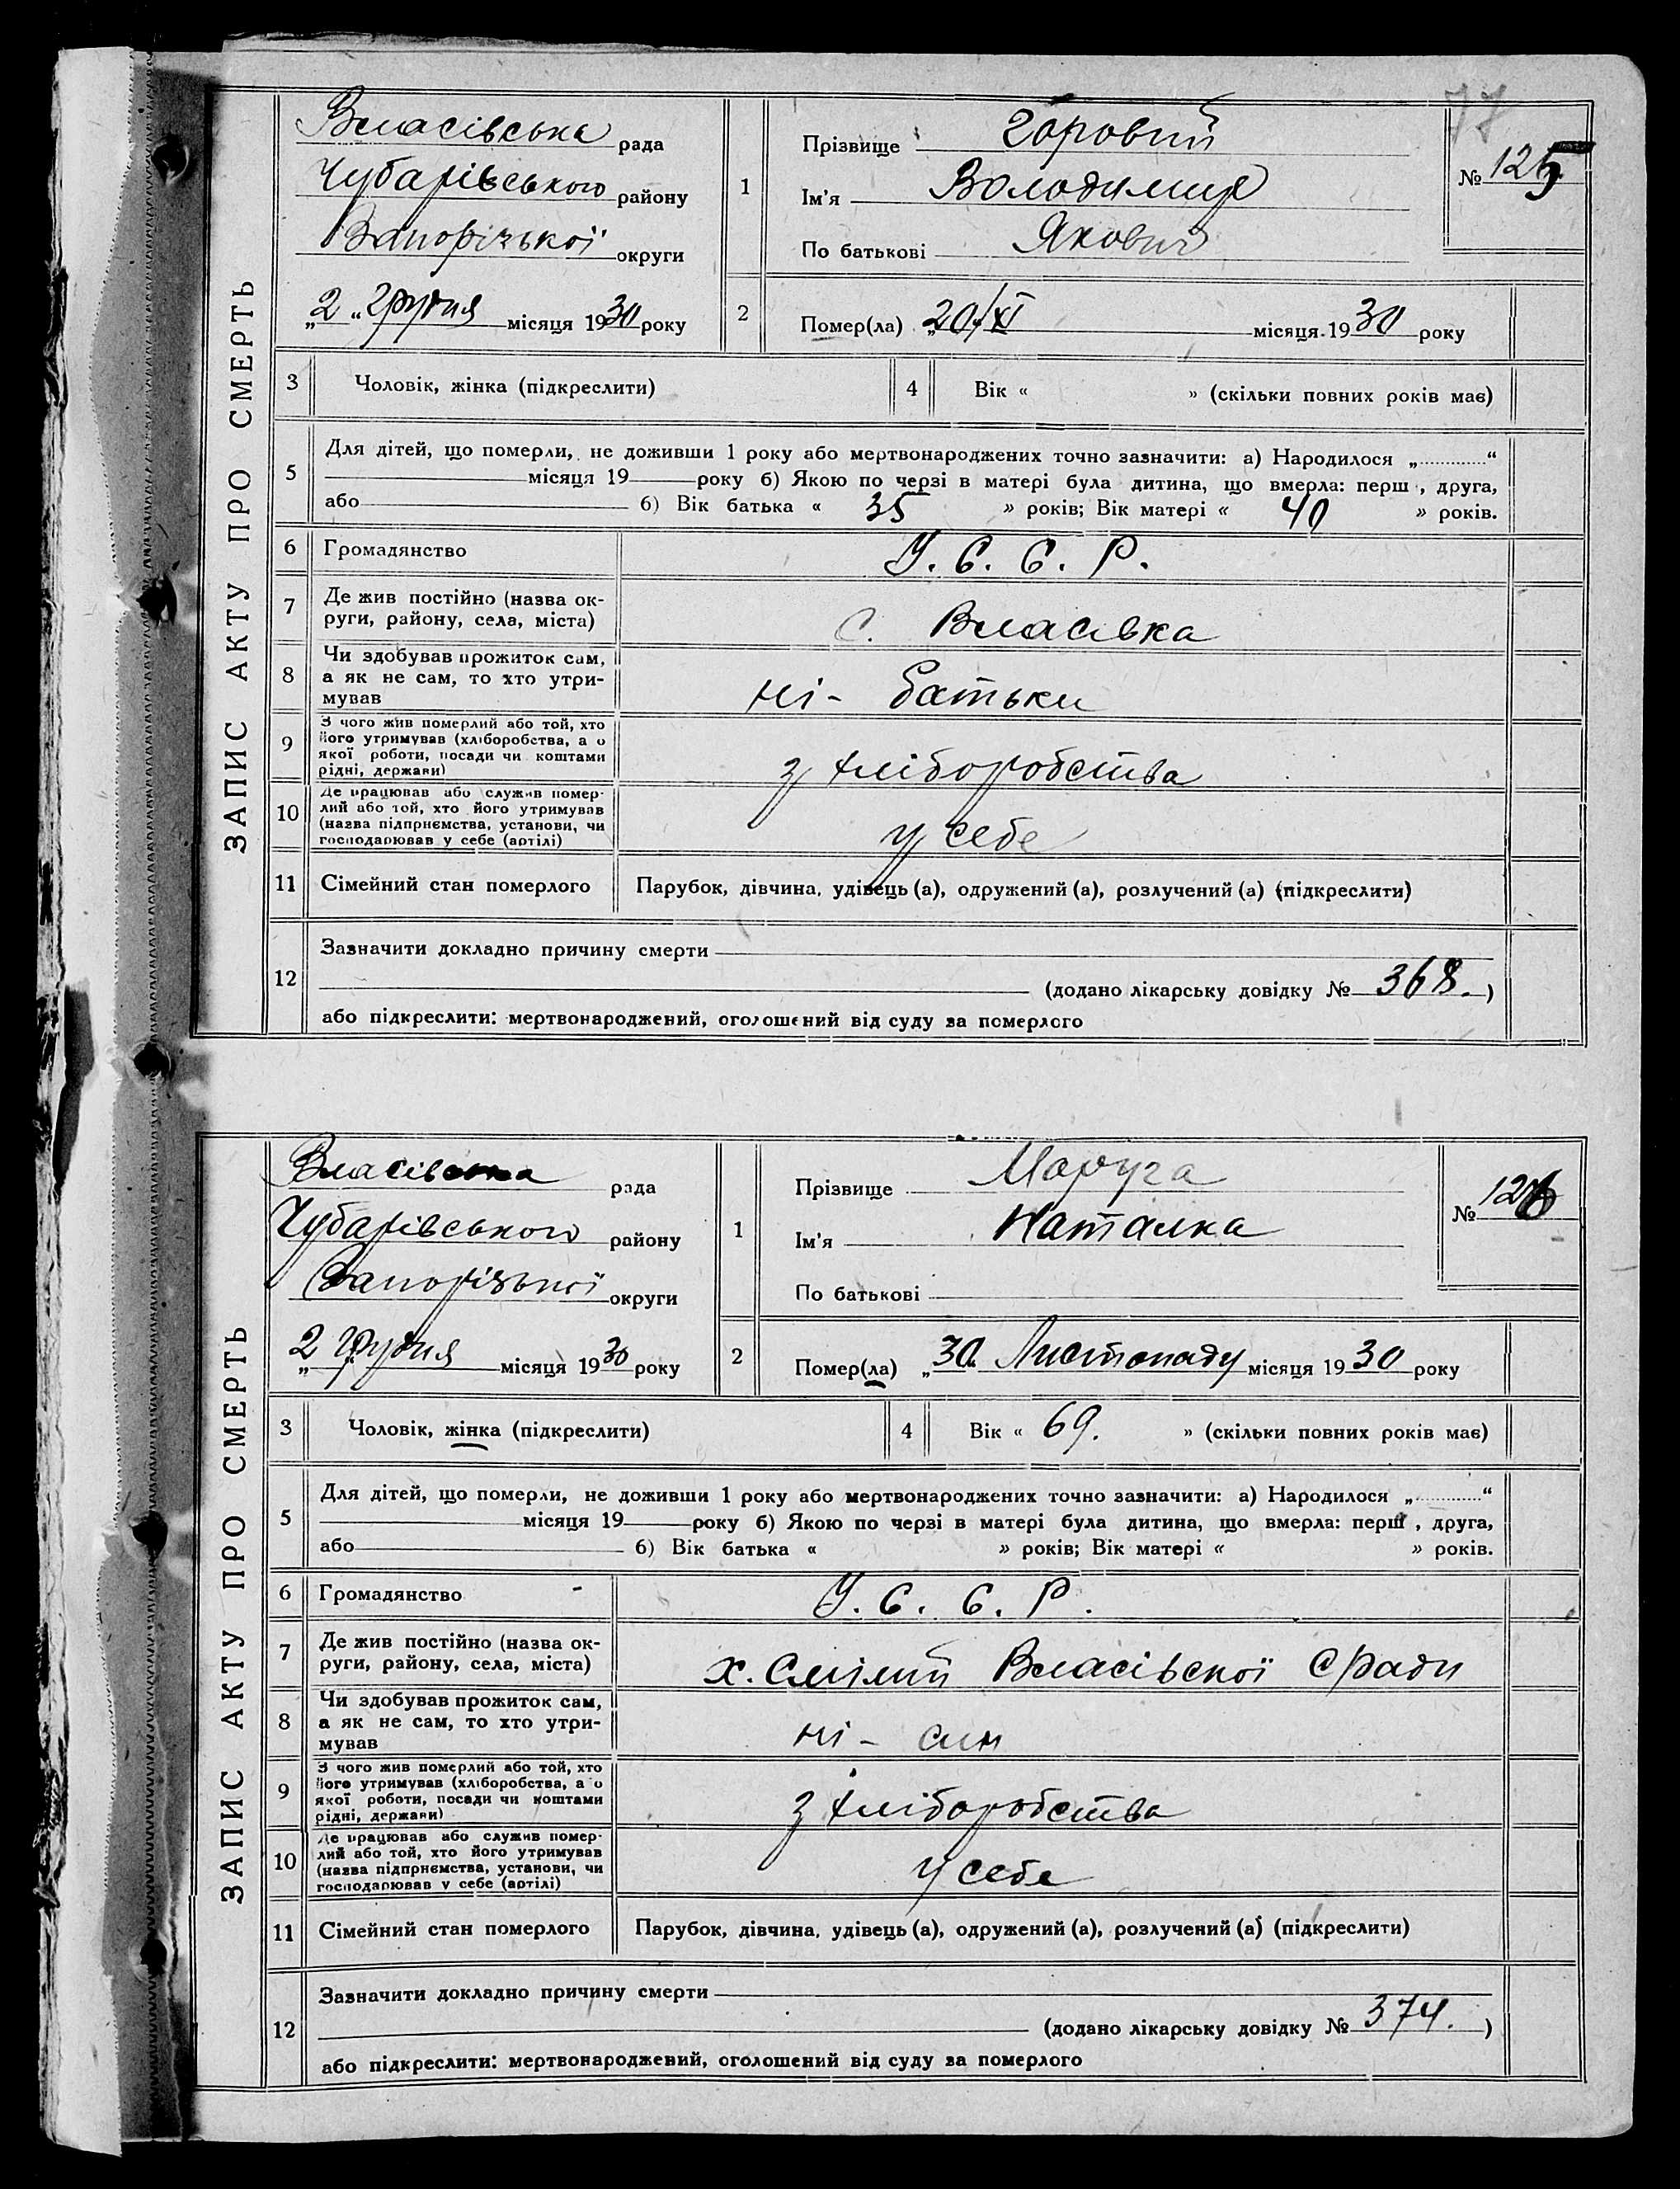 77
ЗАПИС АКТУ ПРО СМЕРТЬ
Власівська рада
Чубарівського району
Запорізької округи
„2" грудня місяця 1930 року
1
Прізвище Горовий
Ім'я Володимир
По батькові Якович
№ 125
2
Помер(ла) „20/XI місяця 1930 року
3 Чоловік, жінка (підкреслити)
4 Вік « » (скільки повних років має)
5 Для дітей, що померли, не доживши 1 року або мертвонароджених точно зазначити: а) Народилося „ “
місяця 19 року б) Якою по черзі в матері була дитина, що вмерла: перш , друга,
або 6) Вік батька « 35 » років; Вік матері « 40 » років.
6 Громадянство У. С. С. Р.
7 Де жив постійно (назва ок-
руги, району, села, міста) с. Власівка
8 Чи здобував прожиток сам,
а як не сам, то хто утри-
мував ні - батьки
9 З чого жив померлий або той, хто
його утримував (хліборобства, а о
якої роботи, посади чи коштами
рідні, держави) з хліборобства
10 Де працював або служив помер-
лий або той, хто його утримував
(назва підприємства, установи, чи
господарював у себе (артілі) у себе
11 Сімейний стан померлого Парубок, дівчина, удівець (а), одружений (а), розлучений (а) (підкреслити)
12 Зазначити докладно причину смерти
(додано лікарську довідку № 368. )
або підкреслити: мертвонароджений, оголошений від суду за померлого
ЗАПИС АКТУ ПРО СМЕРТЬ
Власівська рада
Чубарівського району
Запорізької округи
„2" грудня місяця 1930 року
1
Прізвище Маруга
Ім'я Наталка
По батькові
№ 126
2
Помер(ла) „30" Листопаду місяця 1930 року
3 Чоловік, жінка (підкреслити)
4 Вік « 69. » (скільки повних років має)
5 Для дітей, що померли, не доживши 1 року або мертвонароджених точно зазначити: а) Народилося „ “
місяця 19 року б) Якою по черзі в матері була дитина, що вмерла: перш , друга,
або 6) Вік батька « » років; Вік матері « » років.
6 Громадянство У. С. С. Р.
7 Де жив постійно (назва ок-
руги, району, села, міста) х. Смілий Власівскої с/ради
8 Чи здобував прожиток сам,
а як не сам, то хто утри-
мував ні - син
9 З чого жив померлий або той, хто
його утримував (хліборобства, а о
якої роботи, посади чи коштами
рідні, держави) з хліборобства
10 Де працював або служив помер-
лий або той, хто його утримував
(назва підприємства, установи, чи
господарював у себе (артілі) у себе
11 Сімейний стан померлого Парубок, дівчина, удівець (а), одружений (а), розлучений (а) (підкреслити)
12 Зазначити докладно причину смерти
(додано лікарську довідку № 374. )
або підкреслити: мертвонароджений, оголошений від суду за померлого